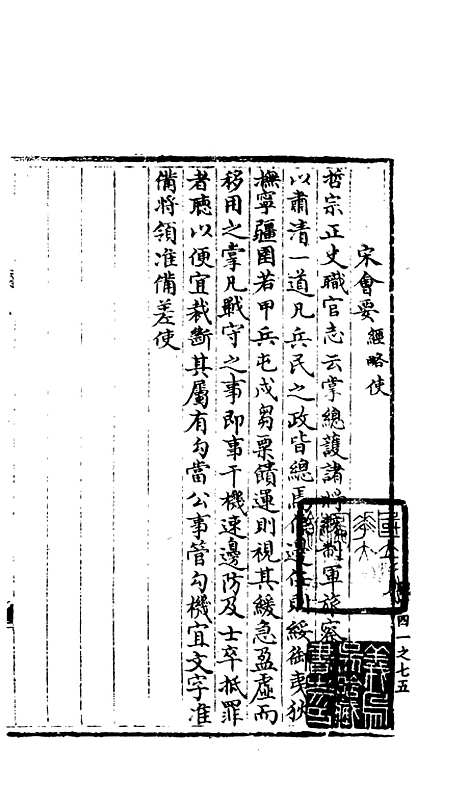 宋會要 經略使
哲宗正史職官志云掌總護諸將統制軍旅察
以肅清一道凡兵民之政皆總焉 邊任則綏御夷狄
撫寧疆圉若甲兵屯戍芻粟饋運則視其緩急盈虛而
移用之掌凡戰守之事即事干機速邊防及士卒抵罪
者聽以便宜裁斷其屬有勾當公事管勾機宜文字准
備將領准備差使
四一之七五